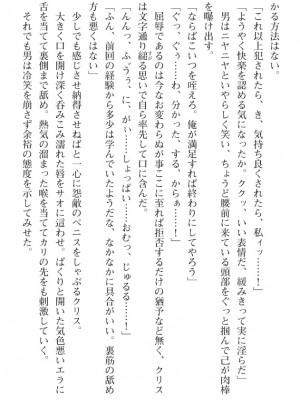 かる方法はない。
「これ以上犯されたら、き、気持ち良くされたら、私ィッ……！」
「ようやく快楽を認める気になったか。ククッ、いい表情だ、緩みきって実に淫らだ」
男はニヤニヤといやらしく笑い、ちょうど腰前に来ている頭部をぐっと掴んで己が肉棒を曝け出す。
「ならばこいつを咥えろ、俺が満足すれば終わりにしてやろう」
「ぐっ、ぐぅ……わ、分かった、する、からぁ……！」
屈辱であるのは今なお変わらぬが事ここに至れば拒否するだけの猶予など無く、クリスは文字通り縋る思いで自ら率先して口に含んだ。
「んんっ、ふ、ぅう、に、がぃ……しょっぱい……おむっ、じゅるる……！」
「ふん、前回の経験から多少は学んでいたようだな、なかなかに具合がいい。裏筋の舐め方も悪くはない」
少しでも感じさせ納得させねばと一心に怨敵のペニスをしゃぶるクリス。
大きく口を開け深く呑みこみ濡れた唇をサオに這わせ、ぱくりと開いた気色悪いエラに舌を当てて裏側まで舐め。熱気の溜まった喉を当ててカリの先をも刺激していく。
それでも男は冷笑を崩さず余裕の態度を示してみせた。